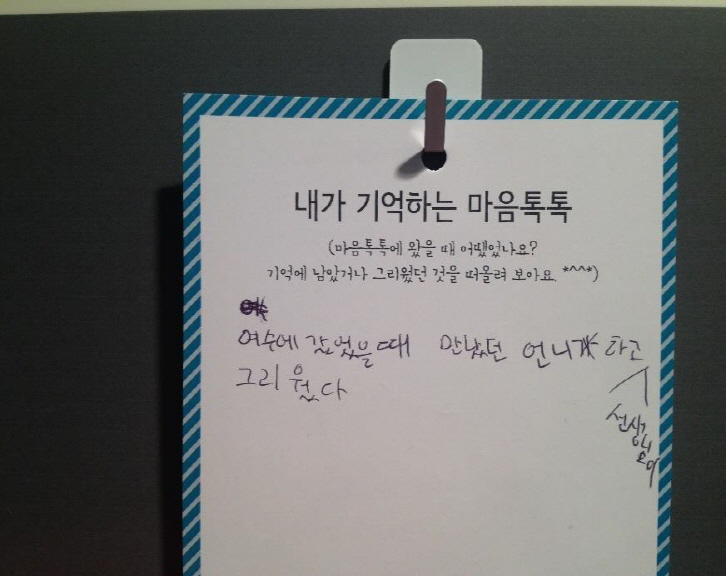 내가 기억하는 마음톡톡
(마음톡톡에 왔을 때 어땠었나요?
기억에 남았거나 그리웠던 것을 떠올려 보아요. *^^*)
여수에 갔었을때 만났던 언니 하고
그리웠다